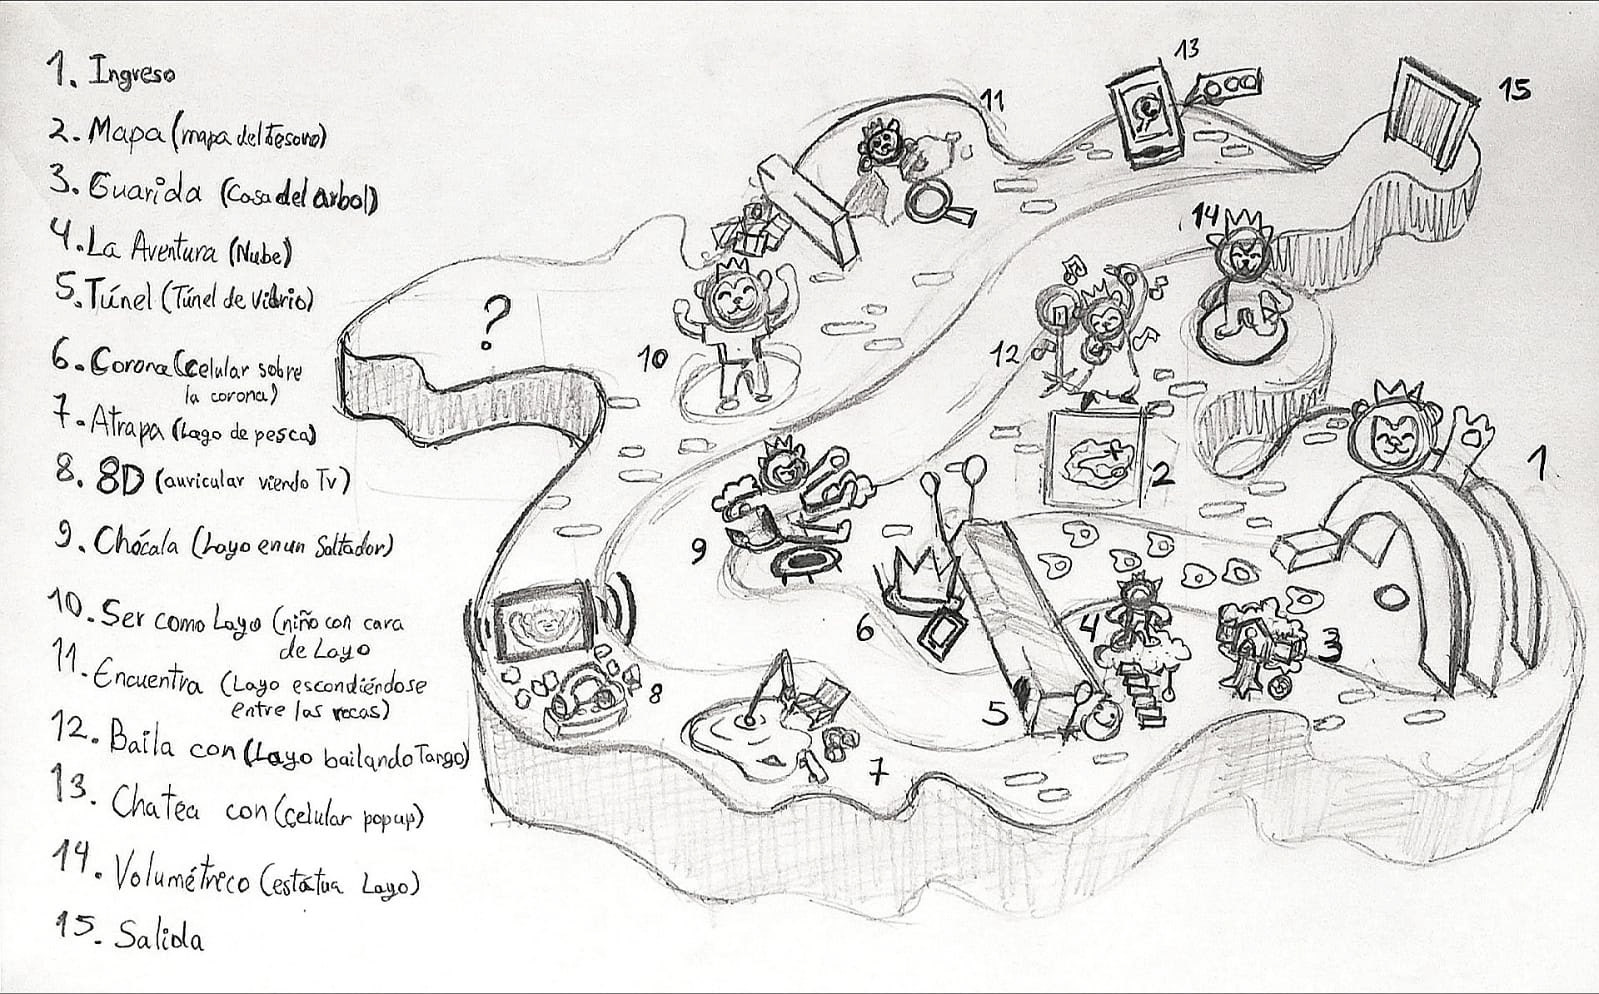 1. Ingreso
2. Mapa (mapa del tesoro)
3. Guarida (Casa del arbol)
4. La Aventura (Nube)
5. Túnel (Túnel de vibrio)
6. Corona (celular sobre
la corona)
7. Atrapa (Lago de pesca)
8. 8D (auricular viendo Tv)
9. Chócala (Layo en un Saltador)
10. Ser como Layo (niño con cara
de Layo
11. Encuentra (Layo escondiéndose
entre las rocas)
12. Baila con (Layo bailando Tango)
13. Chatea con (celular popup)
14. Volumétrico (estatua Layo)
15. Salida
13
11
15
14
?
10
12
1
2
9
6
4
3
8
5
7